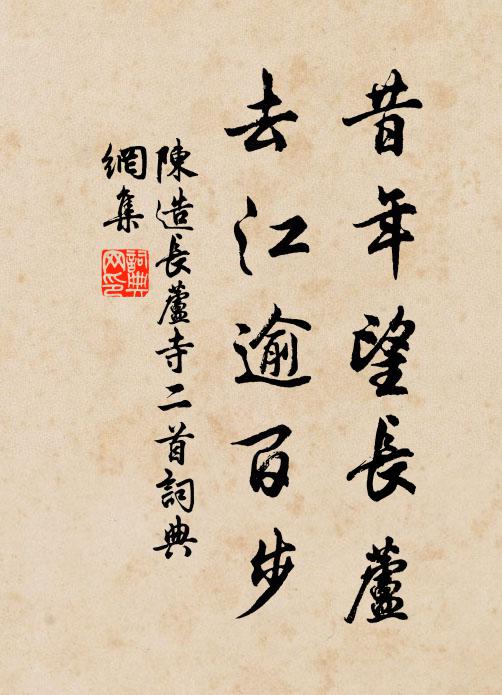 昔年望長蘆
去江逾百步
陳造長蘆寺二首詞典
網集
詞典网印